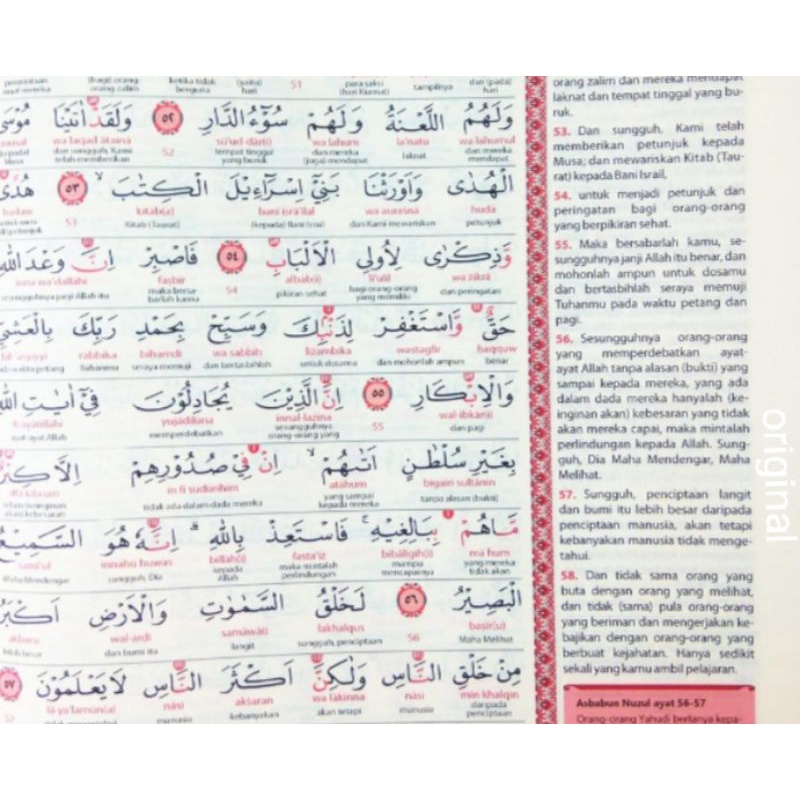 وَلَهُمُ اللَّعْنَةُ وَلَهُمْ سُوْۤءُ الدَّارِ ٥٢ وَلَقَدْ اٰتَيْنَا مُوْسَى
wa lahumul la'natu wa lahum sū'ud-dār(i) 52 wa laqad ātainā
dan mereka mendapat laknat dan mereka (juga) mendapat tempat tinggal yang buruk dan sungguh, Kami telah memberikan
الْهُدٰى وَاَوْرَثْنَا بَنِيْٓ اِسْرَاۤءِيْلَ الْكِتٰبَ ۙ ٥٣ هُدًى
huda wa aurasnā banī isrā'īlal kitāb(a) 53 hudaw
petunjuk dan Kami mewariskan (kepada) Bani Israil Kitab (Taurat)
وَّذِكْرٰى لِاُولِى الْاَلْبَابِ ٥٤ فَاصْبِرْ اِنَّ وَعْدَ اللّٰهِ
wa zikrā li'ulil albāb(i) 54 fasbir inna wa'dallāhi
dan peringatan bagi orang-orang yang memiliki pikiran sehat maka bersabarlah kamu sesungguhnya janji Allah itu
حَقٌّ وَّاسْتَغْفِرْ لِذَنْۢبِكَ وَسَبِّحْ بِحَمْدِ رَبِّكَ بِالْعَشِيِّ
haqquw wastagfir lizambika wa sabbih bihamdi rabbika bil 'asyiyyi
benar dan mohonlah ampun untuk dosamu dan bertasbihlah seraya memuji Tuhanmu pada waktu petang
وَالْاِبْكَارِ ٥٥ اِنَّ الَّذِيْنَ يُجَادِلُوْنَ فِيْٓ اٰيٰتِ اللّٰهِ
wal-ibkār(i) 55 innal-lazīna yujādilūna fī āyātillāhi
dan pagi sesungguhnya orang-orang yang memperdebatkan ayat-ayat Allah
بِغَيْرِ سُلْطٰنٍ اَتٰىهُمْ ۙ اِنْ فِيْ صُدُوْرِهِمْ اِلَّا كِبْرٌ
bigairi sultānin atāhum in fī sudūrihim illā kibrum
tanpa alasan (bukti) yang sampai kepada mereka tidak ada dalam dada mereka
مَّا هُمْ بِبَالِغِيْهِ ۚ فَاسْتَعِذْ بِاللّٰهِ ۗ اِنَّهٗ هُوَ السَّمِيْعُ
mā hum bibāligīh(i) fasta'iz billāh(i) innahū huwas samī'ul
yang mereka tidak akan mampu mencapainya maka mintalah perlindungan kepada Allah sungguh, Dia Maha Mendengar
الْبَصِيْرُ ٥٦ لَخَلْقُ السَّمٰوٰتِ وَالْاَرْضِ اَكْبَرُ
basīr(u) 56 lakhalqus samāwāti wal-ardi akbaru
Maha Melihat sungguh, penciptaan langit dan bumi itu lebih besar
مِنْ خَلْقِ النَّاسِ وَلٰكِنَّ اَكْثَرَ النَّاسِ لَا يَعْلَمُوْنَ ٥٧
min khalqin nāsi wa lākinna aksaran nāsi lā ya'lamūn(a)
daripada penciptaan manusia akan tetapi kebanyakan manusia
orang zalim dan mereka mendapat
laknat dan tempat tinggal yang bu-
ruk.
53. Dan sungguh, Kami telah
memberikan petunjuk kepada
Musa; dan mewariskan Kitab (Tau-
rat) kepada Bani Israil,
54. untuk menjadi petunjuk dan
peringatan bagi orang-orang
yang berpikiran sehat.
55. Maka bersabarlah kamu, se-
sungguhnya janji Allah itu benar, dan
mohonlah ampun untuk dosamu
dan bertasbihlah seraya memuji
Tuhanmu pada waktu petang dan
pagi.
56. Sesungguhnya orang-orang
yang memperdebatkan ayat-
ayat Allah tanpa alasan (bukti) yang
sampai kepada mereka, yang ada
dalam dada mereka hanyalah (ke-
inginan akan) kebesaran yang tidak
akan mereka capai, maka mintalah
perlindungan kepada Allah. Sung-
guh, Dia Maha Mendengar, Maha
Melihat.
57. Sungguh, penciptaan langit
dan bumi itu lebih besar daripada
penciptaan manusia, akan tetapi
kebanyakan manusia tidak menge-
tahui.
58. Dan tidak sama orang yang
buta dengan orang yang melihat,
dan tidak (sama) pula orang-orang
yang beriman dan mengerjakan ke-
bajikan dengan orang-orang yang
berbuat kejahatan. Hanya sedikit
sekali yang kamu ambil pelajaran.
Asbabun Nuzul ayat 56-57
Orang-orang Yahudi bertanya kepa-
original